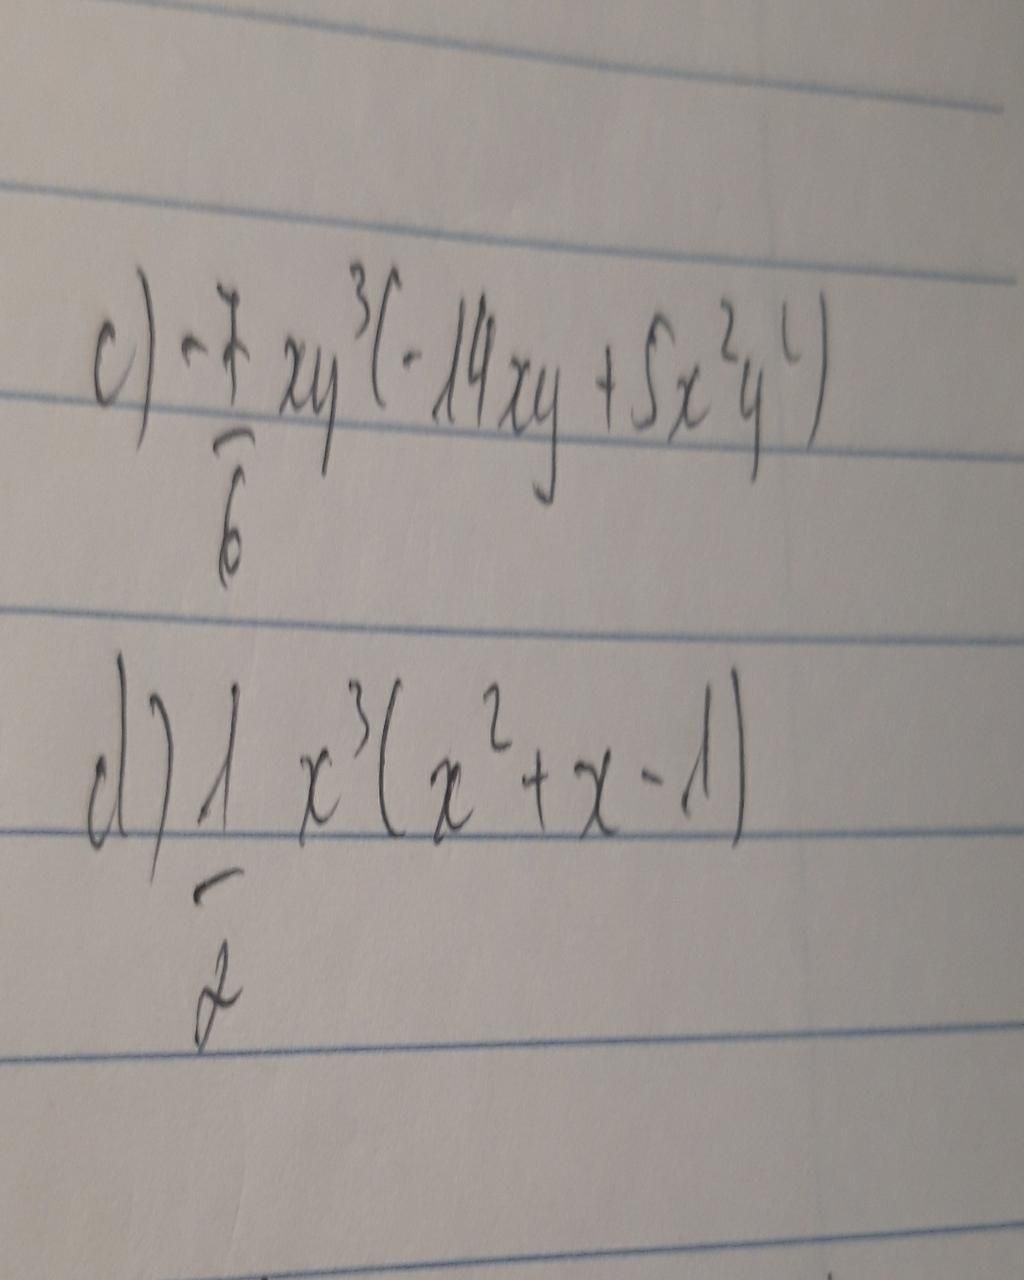 c) -7/6 xy³(-14xy + 5x²y
d) 1/2 x³(x² + x - 1)